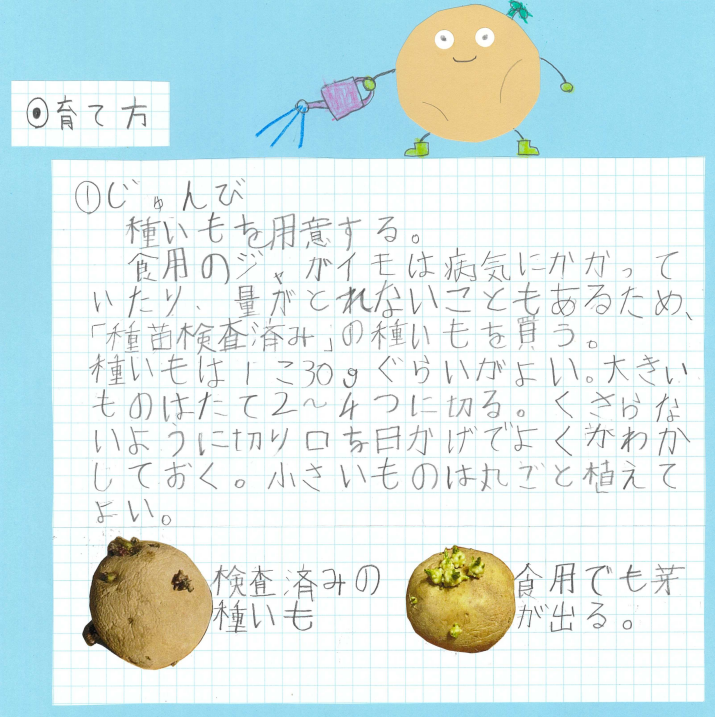 ◉育て方
①じゅんび
種いもを用意する。
食用のジャガイモは病気にかかって
いたり、量がとれないこともあるため、
「種苗検査済み」の種いもを買う。
種いもは1こ30gぐらいがよい。大きい
ものはたて2〜4つに切る。くさらな
いように切り口を日かげでよくかわか
しておく。小さいものは丸ごと植えて
よい。
検査済みの
種いも
食用でも芽
が出る。